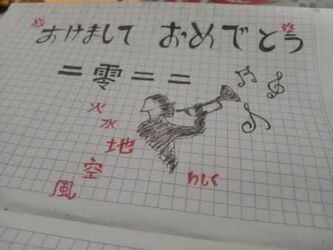 おけまして おめでとう
二零二二
火
水
地
空
風
わしく